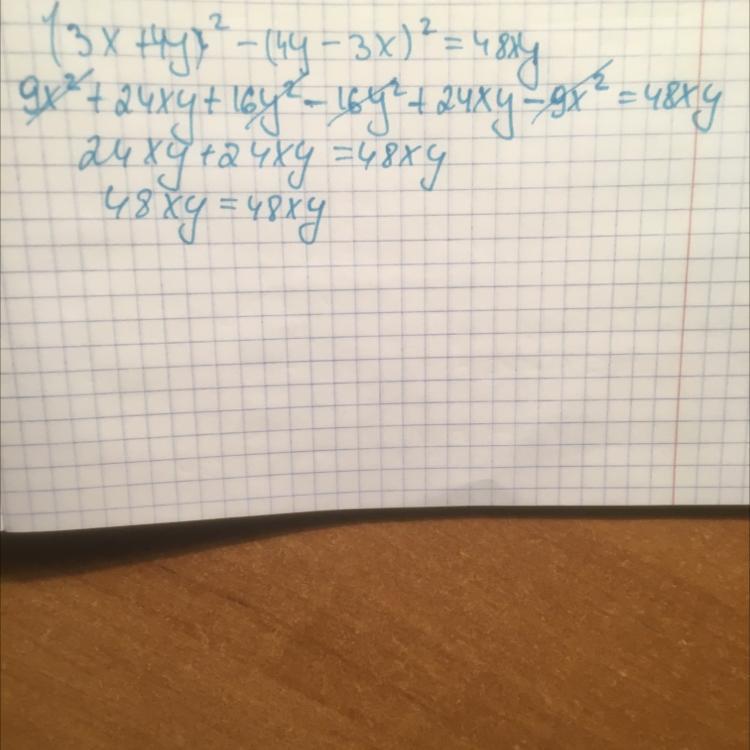 (3x + 4y)² - (4y - 3x)² = 48xy
9x² + 24xy + 16y² - 16y² + 24xy - 9x² = 48xy
24xy + 24xy = 48xy
48xy = 48xy